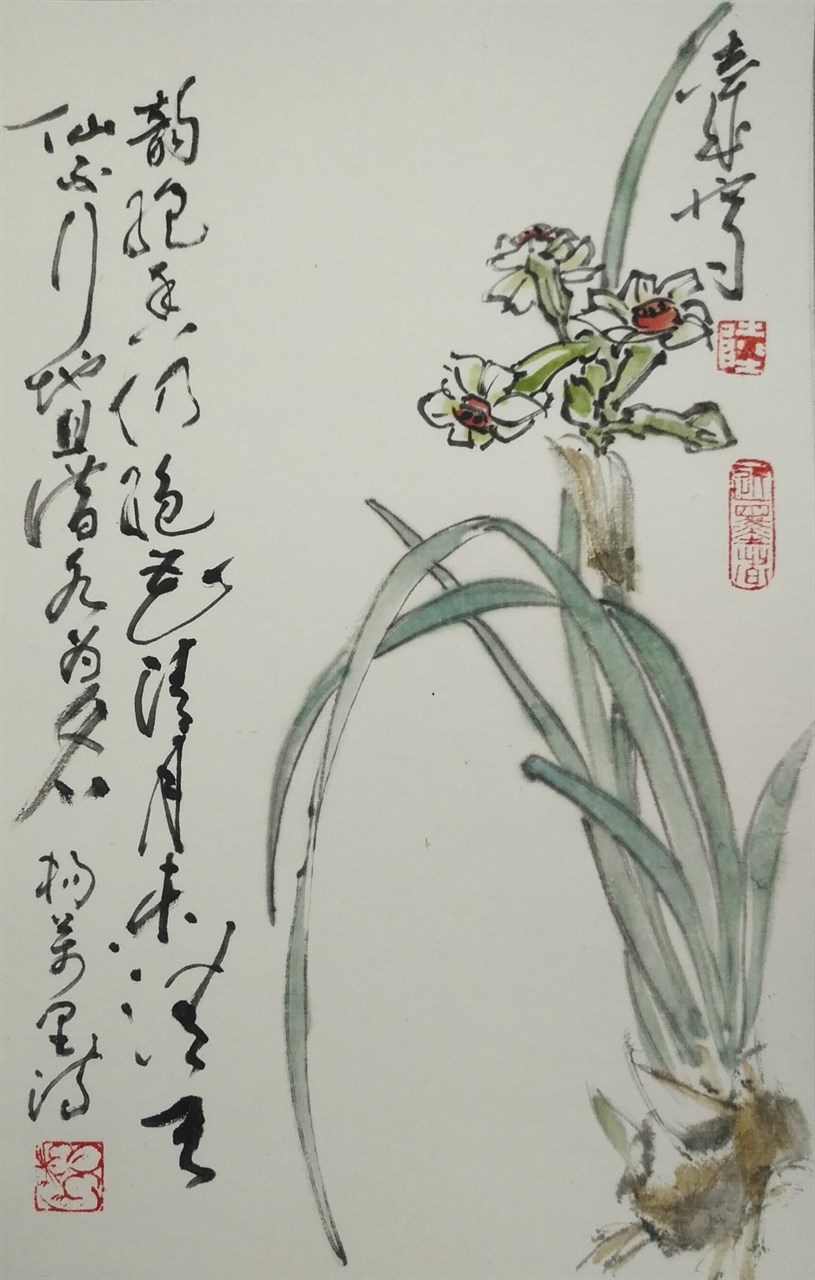 陆
近墨者
韵绝香仍绝花清月未清天
仙不行地且借水为名
杨萬里诗